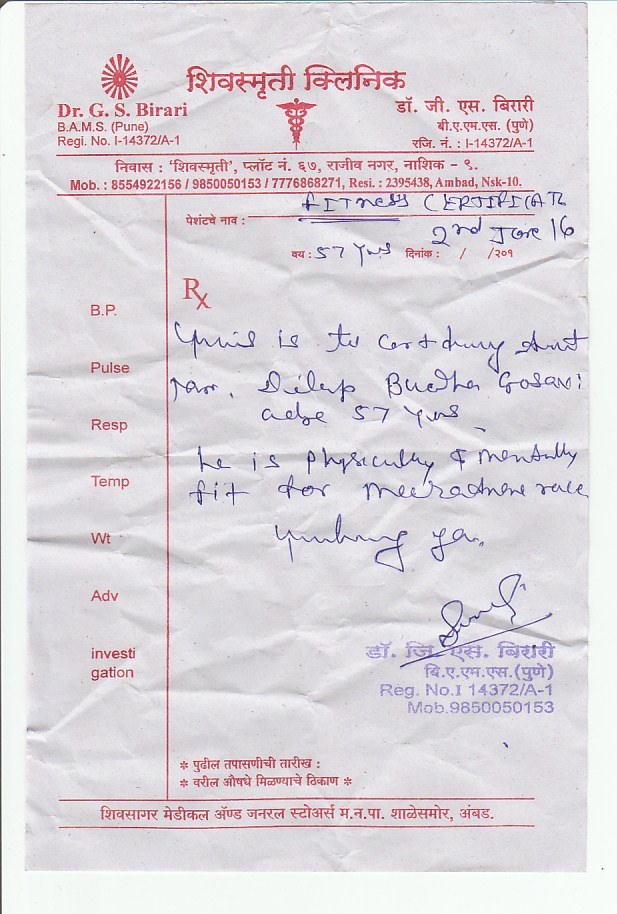 शिवस्मृती क्लिनिक
Dr. G. S. Birari
B.A.M.S. (Pune)
Regi. No. I-14372/A-1
डॉ. जी. एस. बिरारी
बी.ए.एम.एस. (पुणे)
रजि. नं. : I-14372/A-1
निवास : 'शिवस्मृती', प्लॉट नं. ६७, राजीव नगर, नाशिक - ९.
Mob. : 8554922156 / 9850050153 / 7776868271, Resi. : 2395438, Ambad, Nsk-10.
FITNESS CERTIFICATE
पेशंटचे नाव :
2nd June 16
वय : 57 yrs दिनांक : / /२०१
Rx
B.P.
This is to certify that
Pulse
Mr. Dilip Budha Gosavi
Resp
age 57 yrs.
he is physically & mentally
Temp
fit for race
Wt
Thanking you.
Adv
investi
gation
डॉ. जि. एस. बिरारी
बि.ए.एम.एस. (पुणे)
Reg. No.I 14372/A-1
Mob.9850050153
* पुढील तपासणीची तारीख :
* वरील औषधे मिळण्याचे ठिकाण *
शिवसागर मेडीकल ॲण्ड जनरल स्टोअर्स म.न.पा. शाळेसमोर, अंबड.